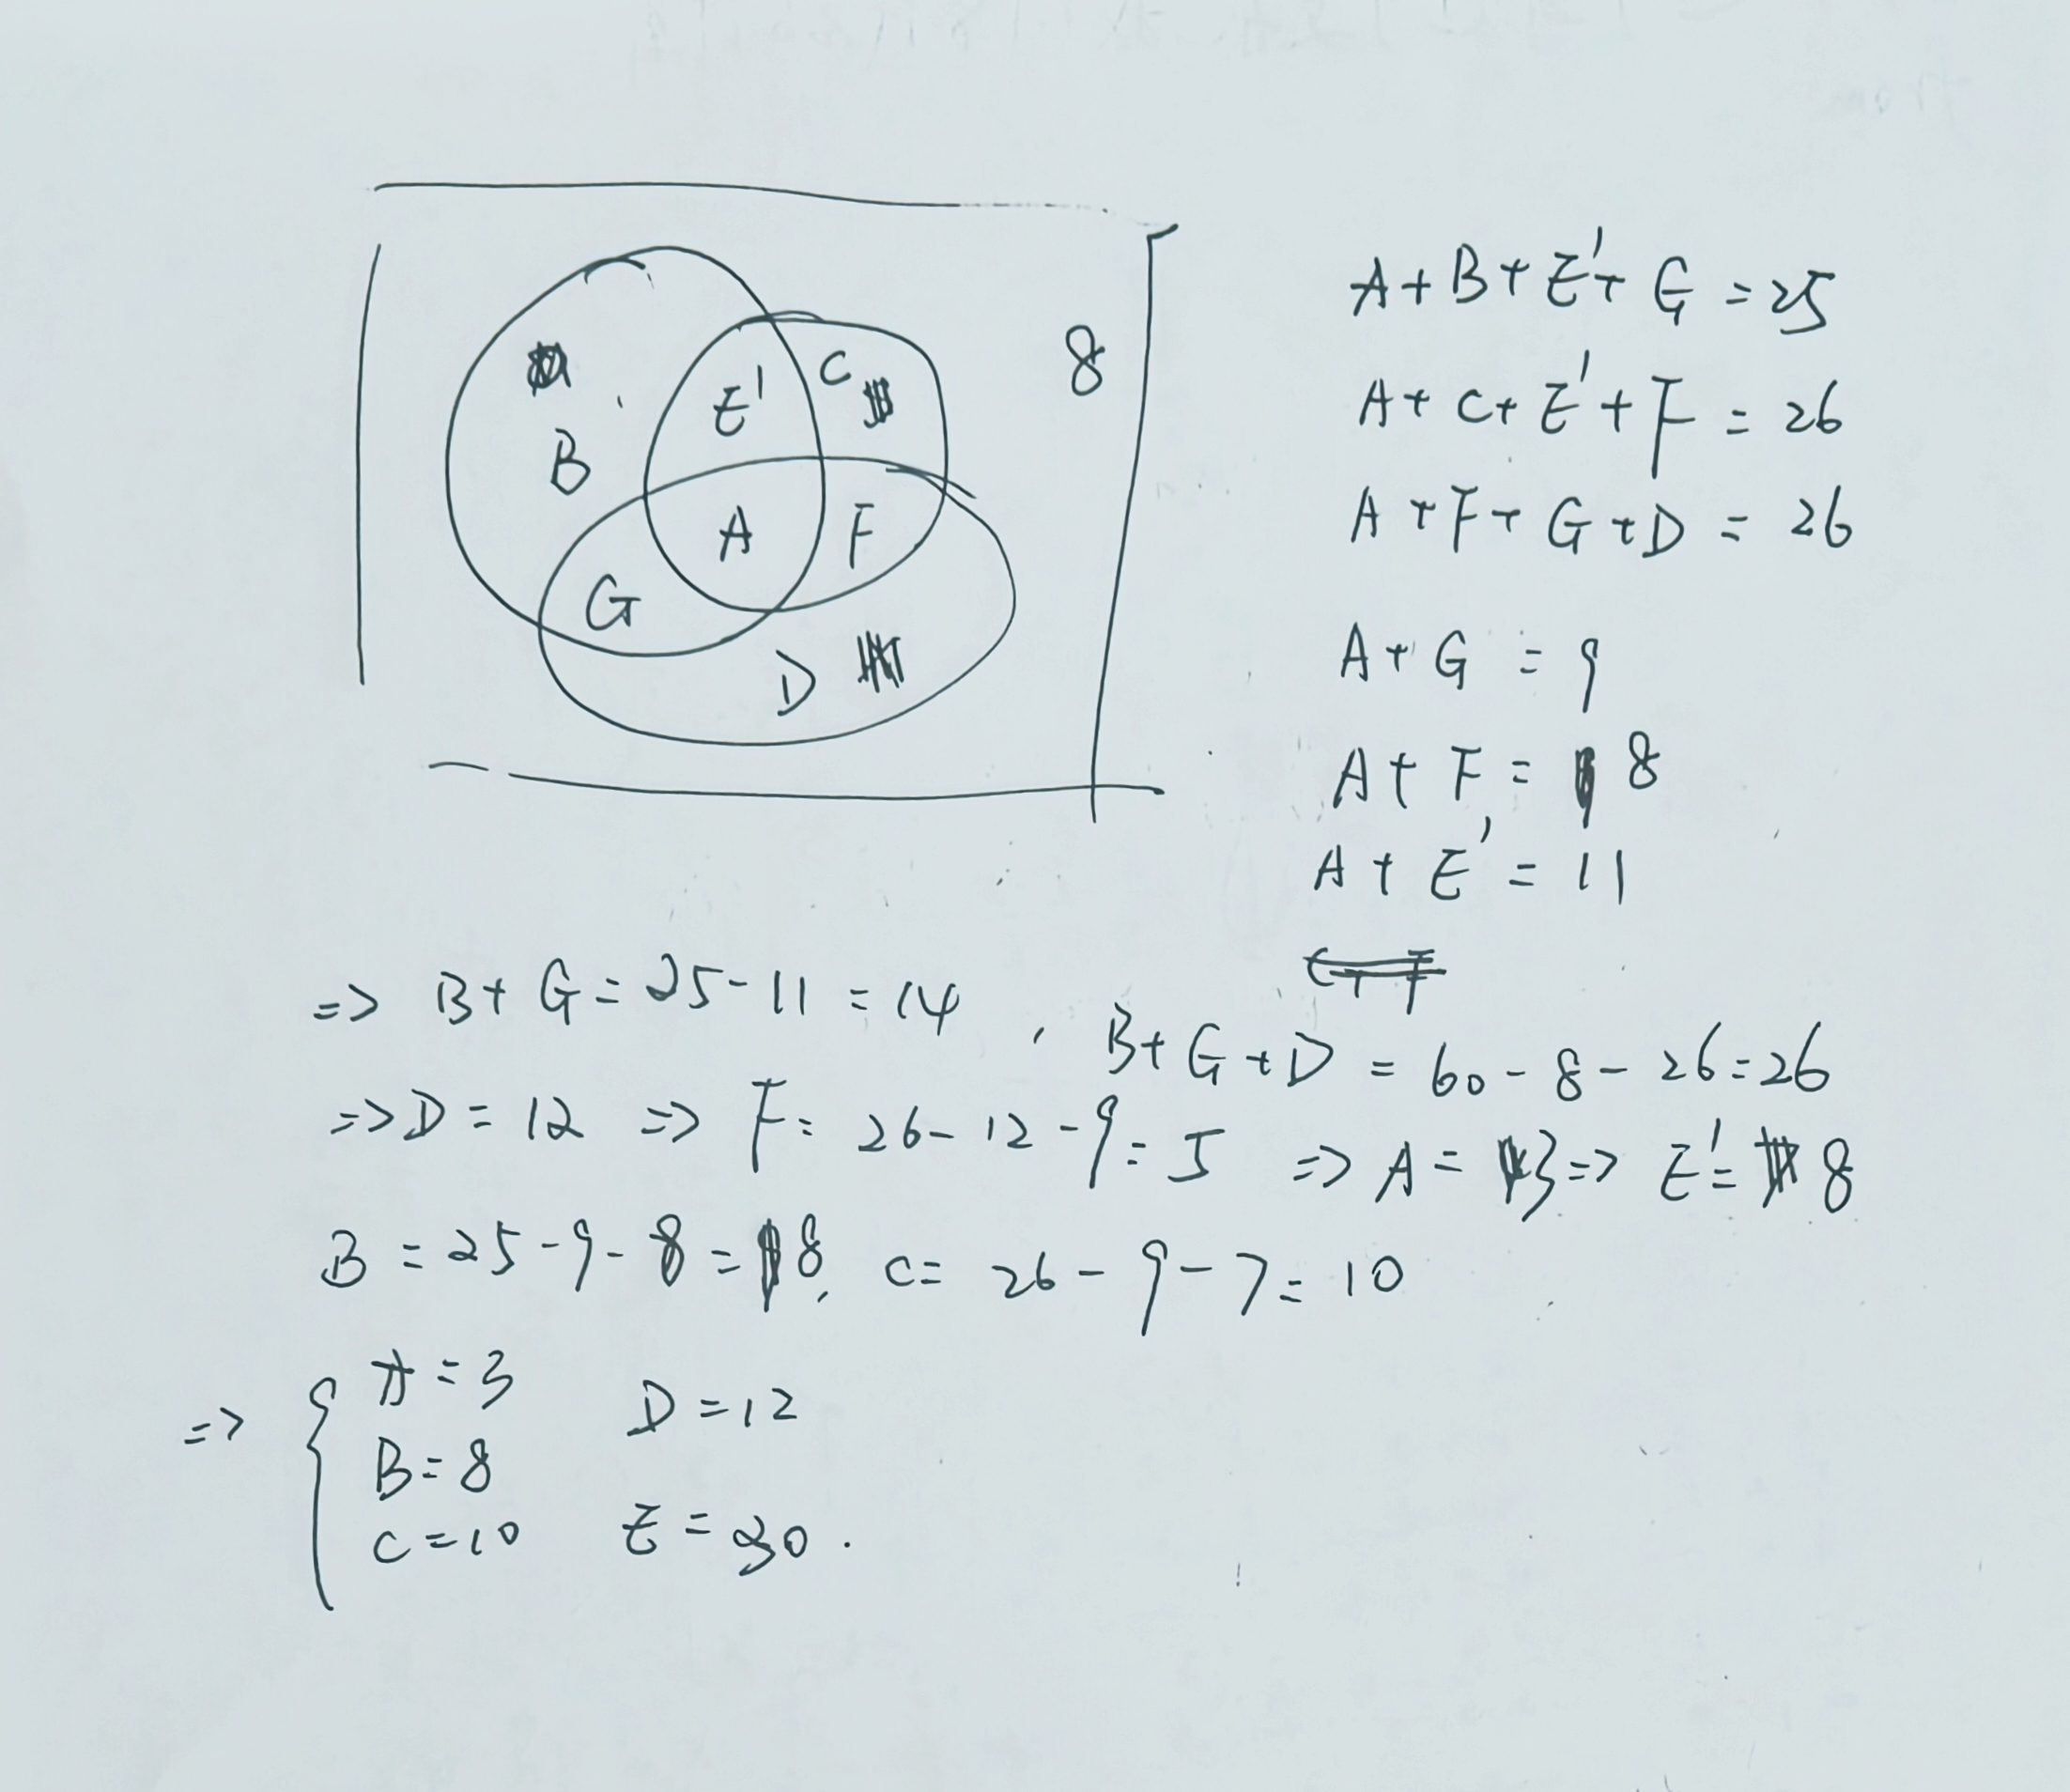 B
E'
C
8
A
F
G
D
A+B+E'+G=25
A+C+E'+F=26
A+F+G+D=26
A+G=9
A+F=8
A+E'=11
=> B+G=25-11=14, B+G+D=60-8-26=26
=>D=12 => F=26-12-9=5 => A=3=> E'=8
B=25-9-8=8, C=26-9-7=10
=> { A=3 D=12
B=8
C=10 E=30.